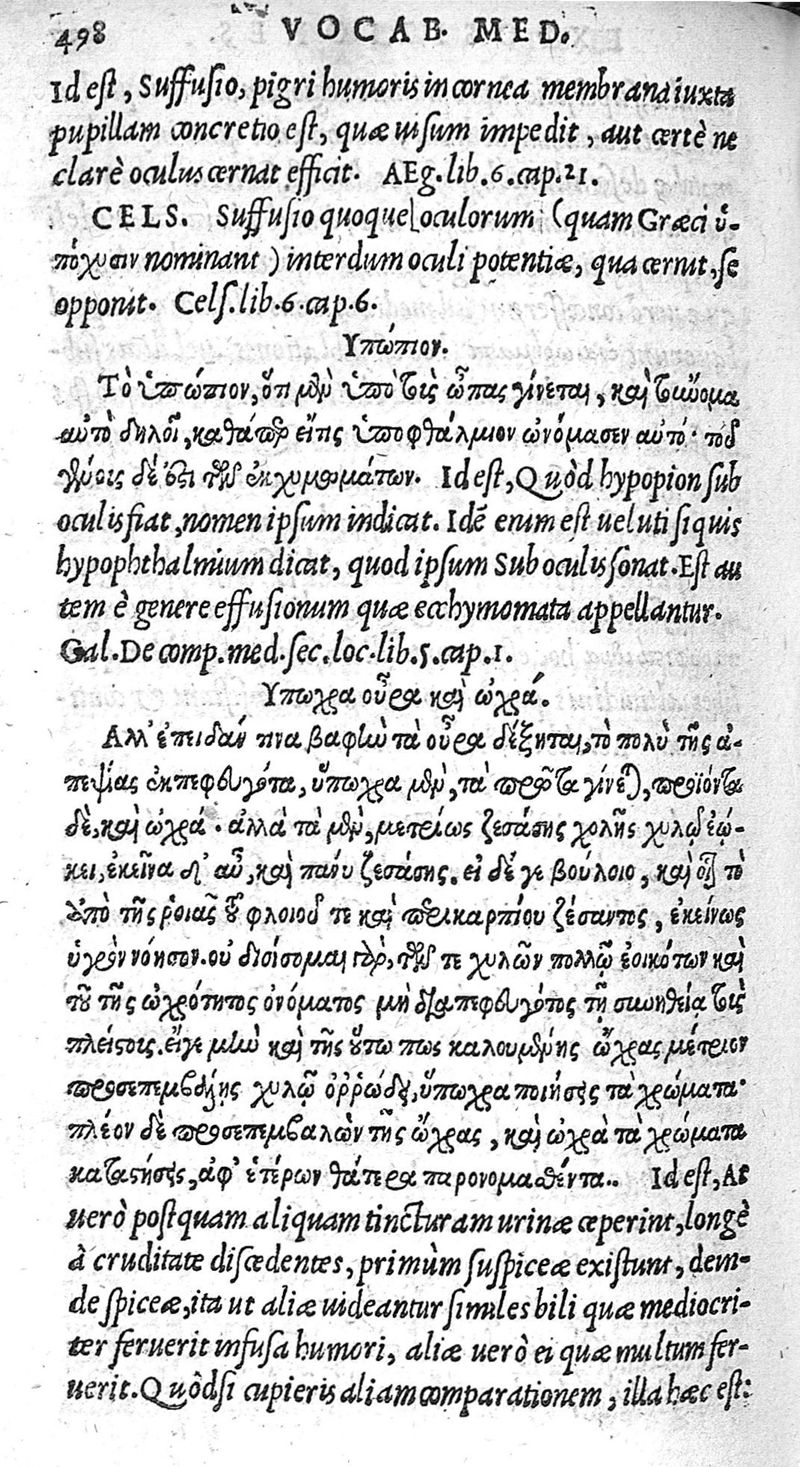 498 VOCAB. MED.
Id est, Suffusio, pigri humoris in cornea membrana iuxta
pupillam concretio est, quæ uisum impedit, aut certè ne
clarè oculus cernat efficit. AEg. lib. 6. cap. 21.
CELS. Suffusio quoque oculorum (quam Græci ὑ-
πόχυσιν nominant) interdum oculi potentiæ, qua cernit, se
opponit. Cels. lib. 6. cap. 6.
Υπώπιον.
Τὸ ὑπώπιον, ὅτι μὲν ὑπὸ τοῖς ὦπας γίνεται, καὶ τοὔνομα
αὐτὸ δηλοῖ, καθάπερ εἴ τις ὑποφθάλμιον ὠνόμασεν αὐτό· τοῦ
γένους δέ ἐστι τῶν ἐκχυμωμάτων. Id est, Quòd hypopion sub
oculis fiat, nomen ipsum indicat. Idẽ enim est ueluti si quis
hypophthalmium dicat, quod ipsum Sub oculis sonat. Est au
tem è genere effusionum quæ ecchymomata appellantur.
Gal. De comp. med. sec. loc. lib. 5. cap. 1.
Υπωχρα οὖρα καὶ ὠχρά.
Αλλ' ἐπειδάν τινα βαφὴν τὰ οὖρα δέξηται, τὸ πολὺ τῆς ἀ-
πεψίας ἐκπεφευγότα, ὕπωχρα μὲν, τὰ πρῶτα γίνεται, προϊόντα
δὲ, καὶ ὠχρά. ἀλλὰ τὰ μὲν, μετρίως ζεσάσης χολῆς χυλῷ ἐῴ-
κει, ἐκεῖνα δ' αὖ, καὶ πάνυ ζεσάσης. εἰ δέ γε βούλοιο, καὶ οἷον τὸ
ἀπὸ τῆς ῥοιᾶς τοῦ φλοιοῦ τε καὶ περικαρπίου ζέσαντος, ἐκείνως
ὑγρὸν νόησον. οὐ διοίσομαι γὰρ, τῶν τε χυλῶν πολλῷ ἐοικότων καὶ
τοῦ τῆς ὠχρότητος ὀνόματος μὴ διαπεφευγότος τῇ συνηθείᾳ τοῖς
πλείστοις. εἴγε μὴν καὶ τῆς οὕτω πως καλουμένης ὤχρας μέτριον
προσεπεμβάλῃς χυλῷ ὀῤῥώδει, ὕπωχρα ποιήσεις τὰ χρώματα·
πλέον δὲ προσεπεμβαλὼν τῆς ὤχρας, καὶ ὠχρὰ τὰ χρώματα
καταστήσεις, ἀφ' ἑτέρων θάτερα παρονομαθέντα.. Id est, At
uerò postquam aliquam tincturam urinæ ceperint, longè
à cruditate discedentes, primùm suspiceæ existunt, dein-
de spiceæ, ita ut aliæ uideantur similes bili quæ mediocri-
ter feruerit infusa humori, aliæ uerò ei quæ multum fer-
uerit. Quòdsi cupieris aliam comparationem, illa hæc est: